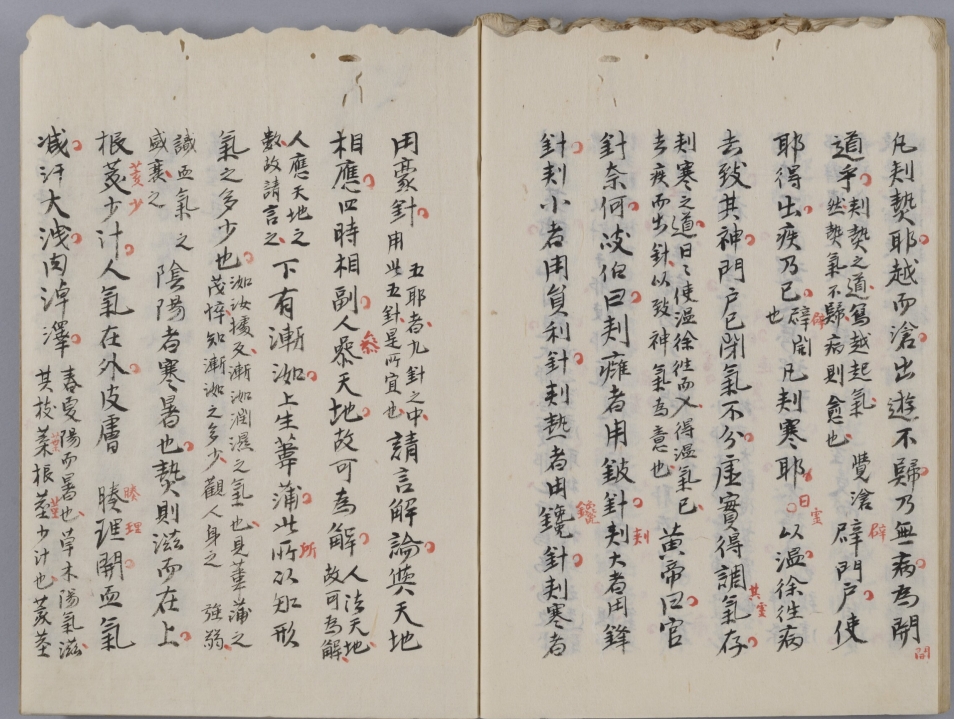 凡刾熱耶越而滄出遊不歸乃無病為開
道乎
刾熱之道寫越起氣覺滄
然熱氣不歸病則愈也
辟門戶使
耶得出疾乃已
辟開
也
凡刾寒耶以温徐往病
去致其神門戶已閉氣不分虛實得調氣存
刾寒之道日〻使温徐往而入得温氣已
去疾而出針以致神氣為意也
黄帝曰官
針奈何歧伯曰刾癰者用鈹針刾大者用鋒
針刾小者用員利針刾熱者用鑱針刾寒者
用豪針
五耶者九針之中
用此五針是所宜也
請言解論與天地
相應四時相副人參天地故可為解
人法天地
故可為解
人應天地之
數故請言之
下有漸洳上生葦蒲此所以知形
氣之多少也
洳汝據反漸洳潤濕之氣也見葦蒲之
茂悴知漸洳之多少觀人身之強弱
識血氣之
盛衰之
陰陽者寒暑也熱則滋而在上
根荄少汁人氣在外皮膚腠理開血氣
減汗大洩肉淖澤
春夏陽而暑也草木陽氣滋
其枝葉根莖少汁也荄莖